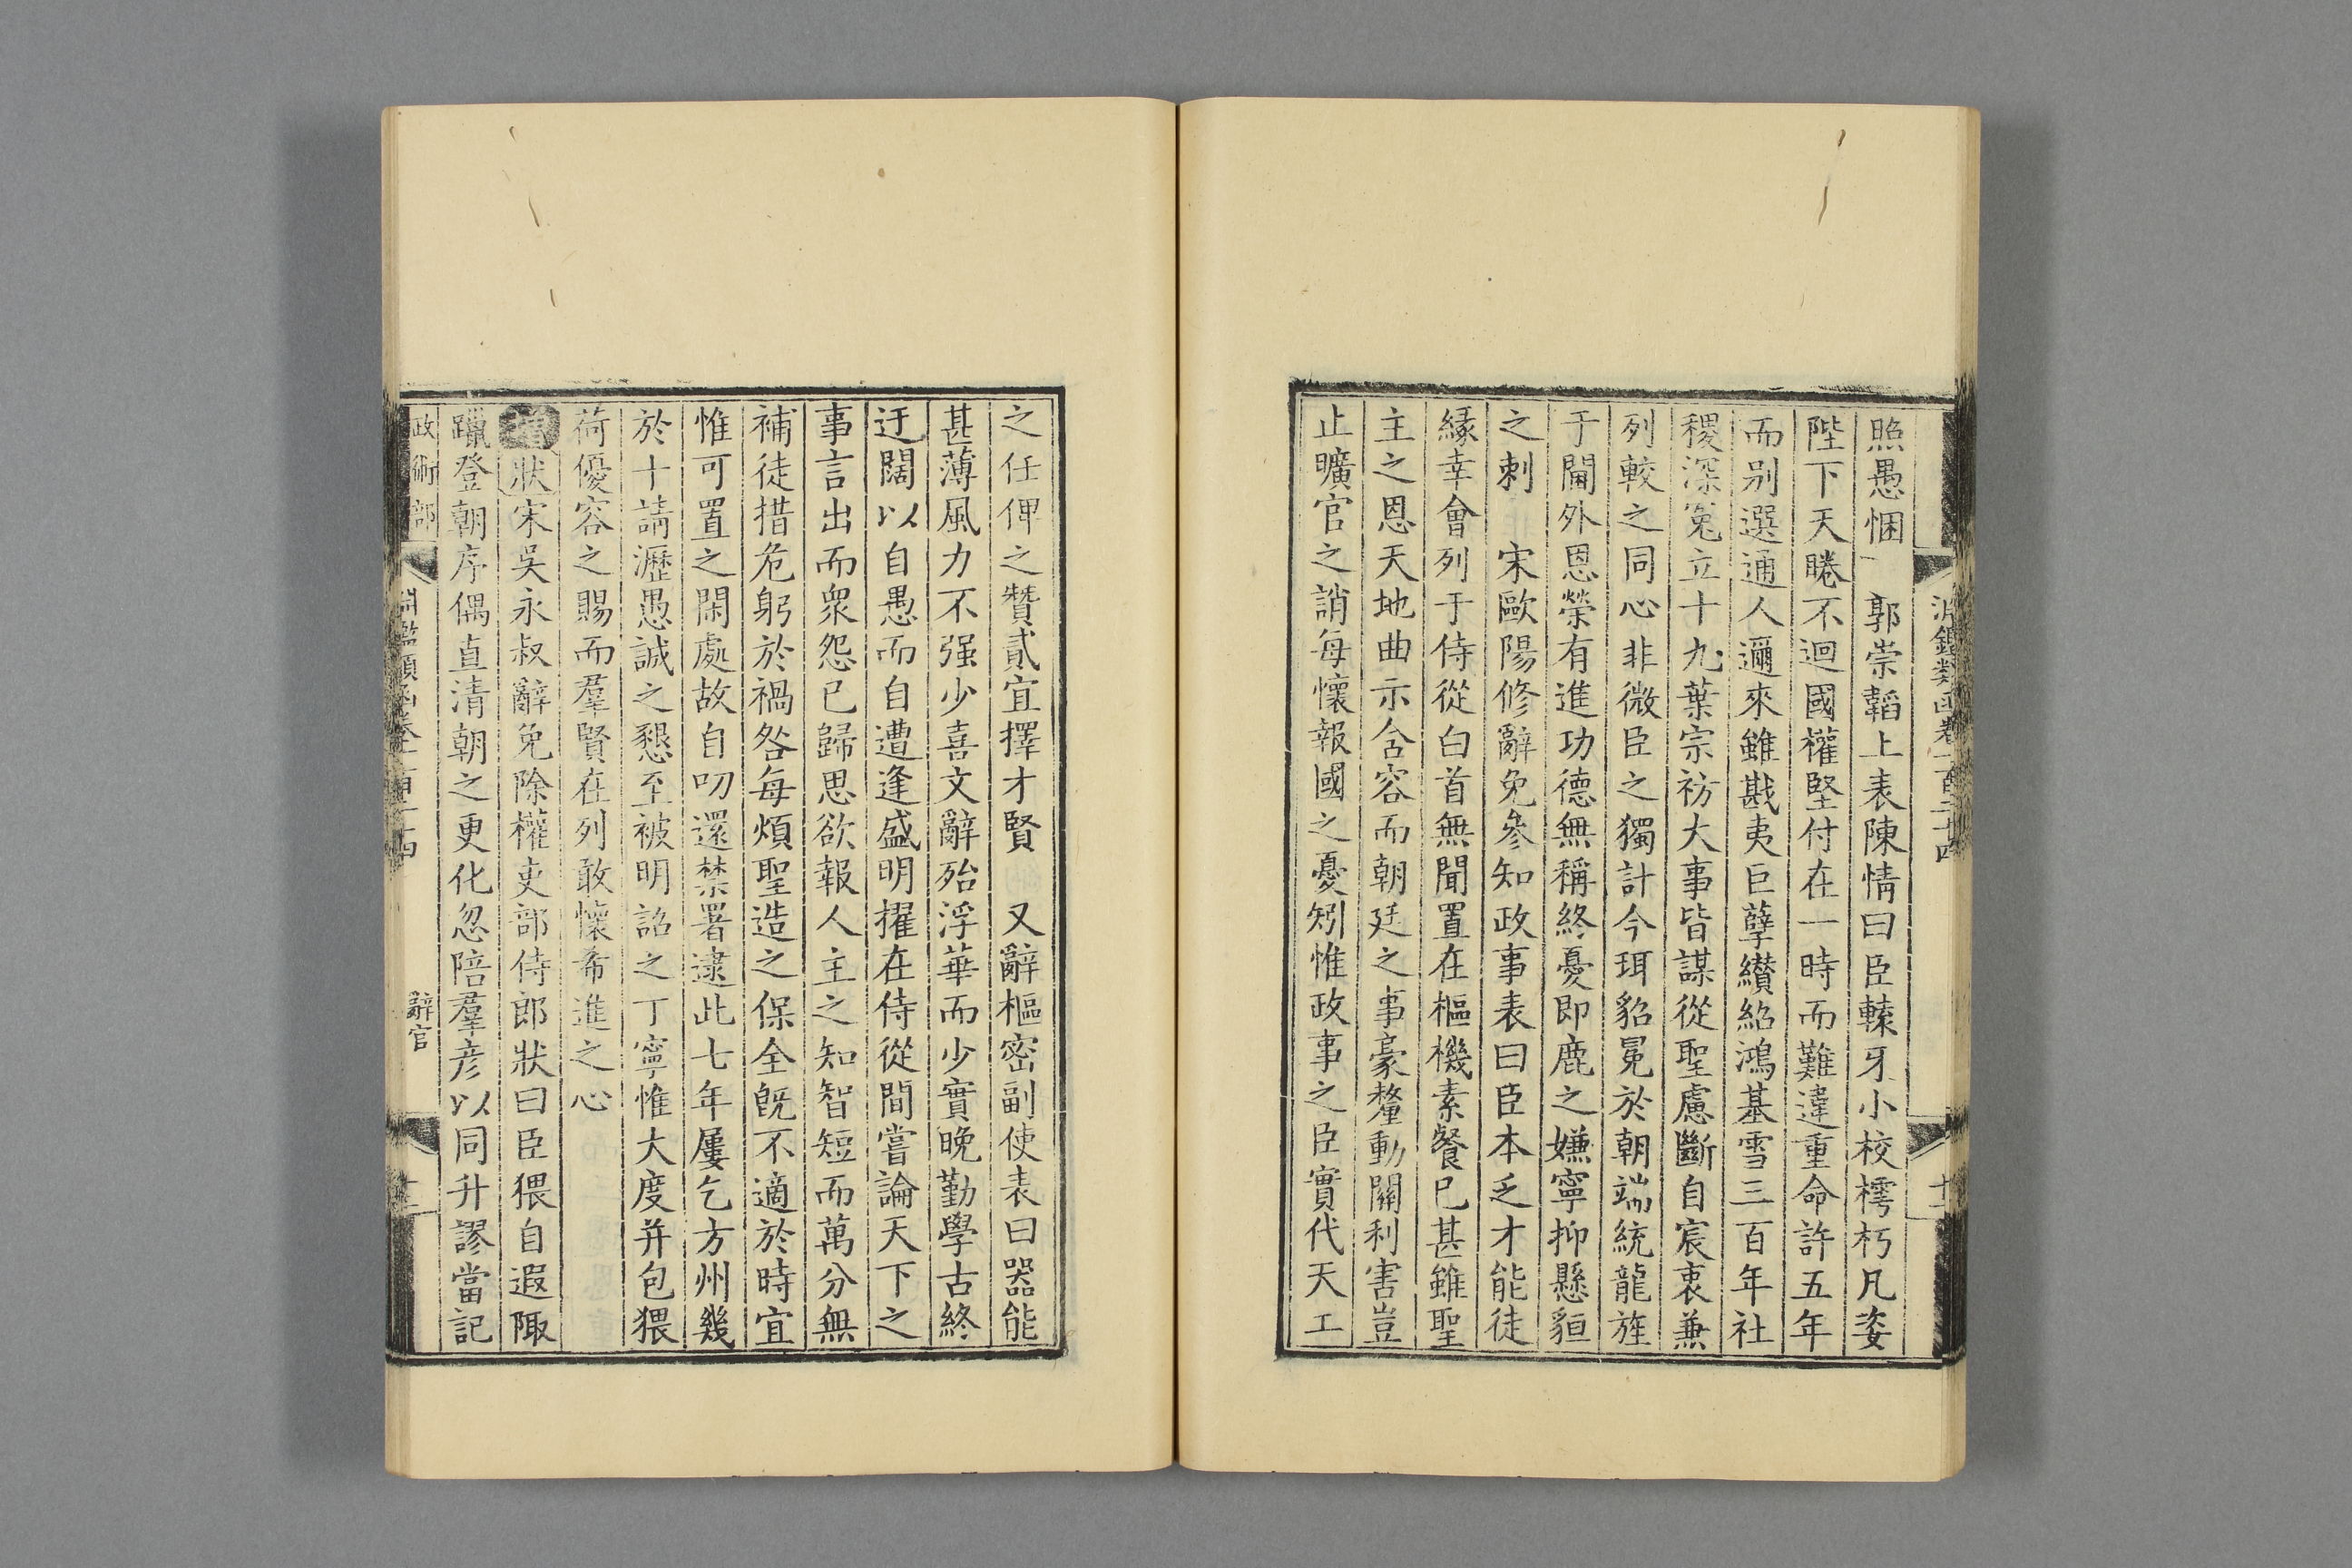 淵鑑類函卷一百二十四
照愚悃 郭崇韜上表陳情曰臣轅牙小校樗朽凡姿
陛下天睠不迴國權堅付在一時而難違重命許五年
而别選通人邇來雖戡夷巨孽纘紹鴻基雪三百年社
稷深冤立十九葉宗祊大事皆謀從聖慮斷自宸衷兼
列較之同心非微臣之獨計今珥貂冕於朝端統龍旌
于閫外恩榮有進功德無稱終憂即鹿之嫌寧抑懸貆
之刺 宋歐陽修辭免參知政事表曰臣本乏才能徒
緣幸會列于侍從白首無聞置在樞機素餐已甚雖聖
主之恩天地曲示含容而朝廷之事豪釐動關利害豈
止曠官之誚每懷報國之憂矧惟政事之臣實代天工
之任俾之贊貳宜擇才賢 又辭樞密副使表曰器能
甚薄風力不强少喜文辭殆浮華而少實晚勤學古終
迂闊以自愚而自遭逢盛明擢在侍從間嘗論天下之
事言出而衆怨已歸思欲報人主之知智短而萬分無
補徒措危躬於禍咎每煩聖造之保全旣不適於時宜
惟可置之閑處故自叨還禁署逮此七年屢乞方州幾
於十請瀝愚誠之懇至被明詔之丁寧惟大度并包猥
荷優容之賜而羣賢在列敢懷希進之心
增狀宋吳永叔辭免除權吏部侍郎狀曰臣猥自遐陬
躐登朝序偶直清朝之更化忽陪羣彦以同升謬當記
政術部 淵鑑類函卷一百二十四 辭官 十二